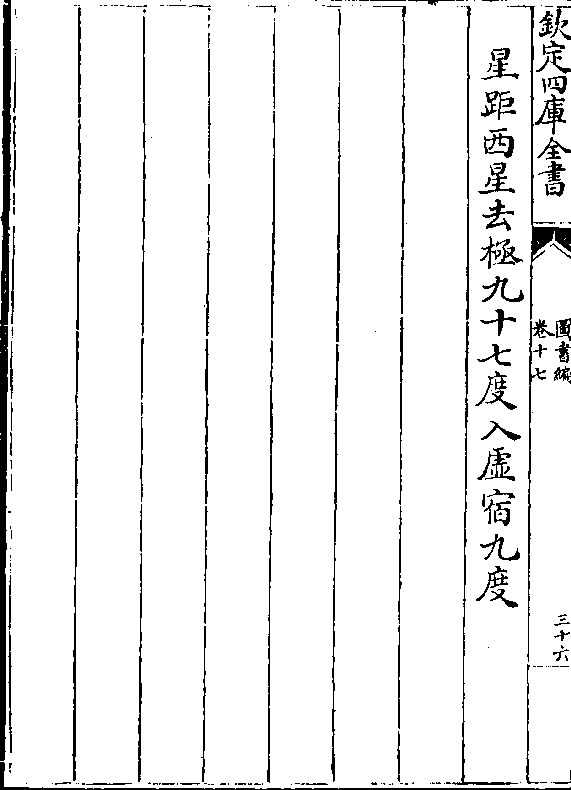 欽定四庫全書
圖書編
卷十七
三十六
星距西星去極九十七度入虛宿九度